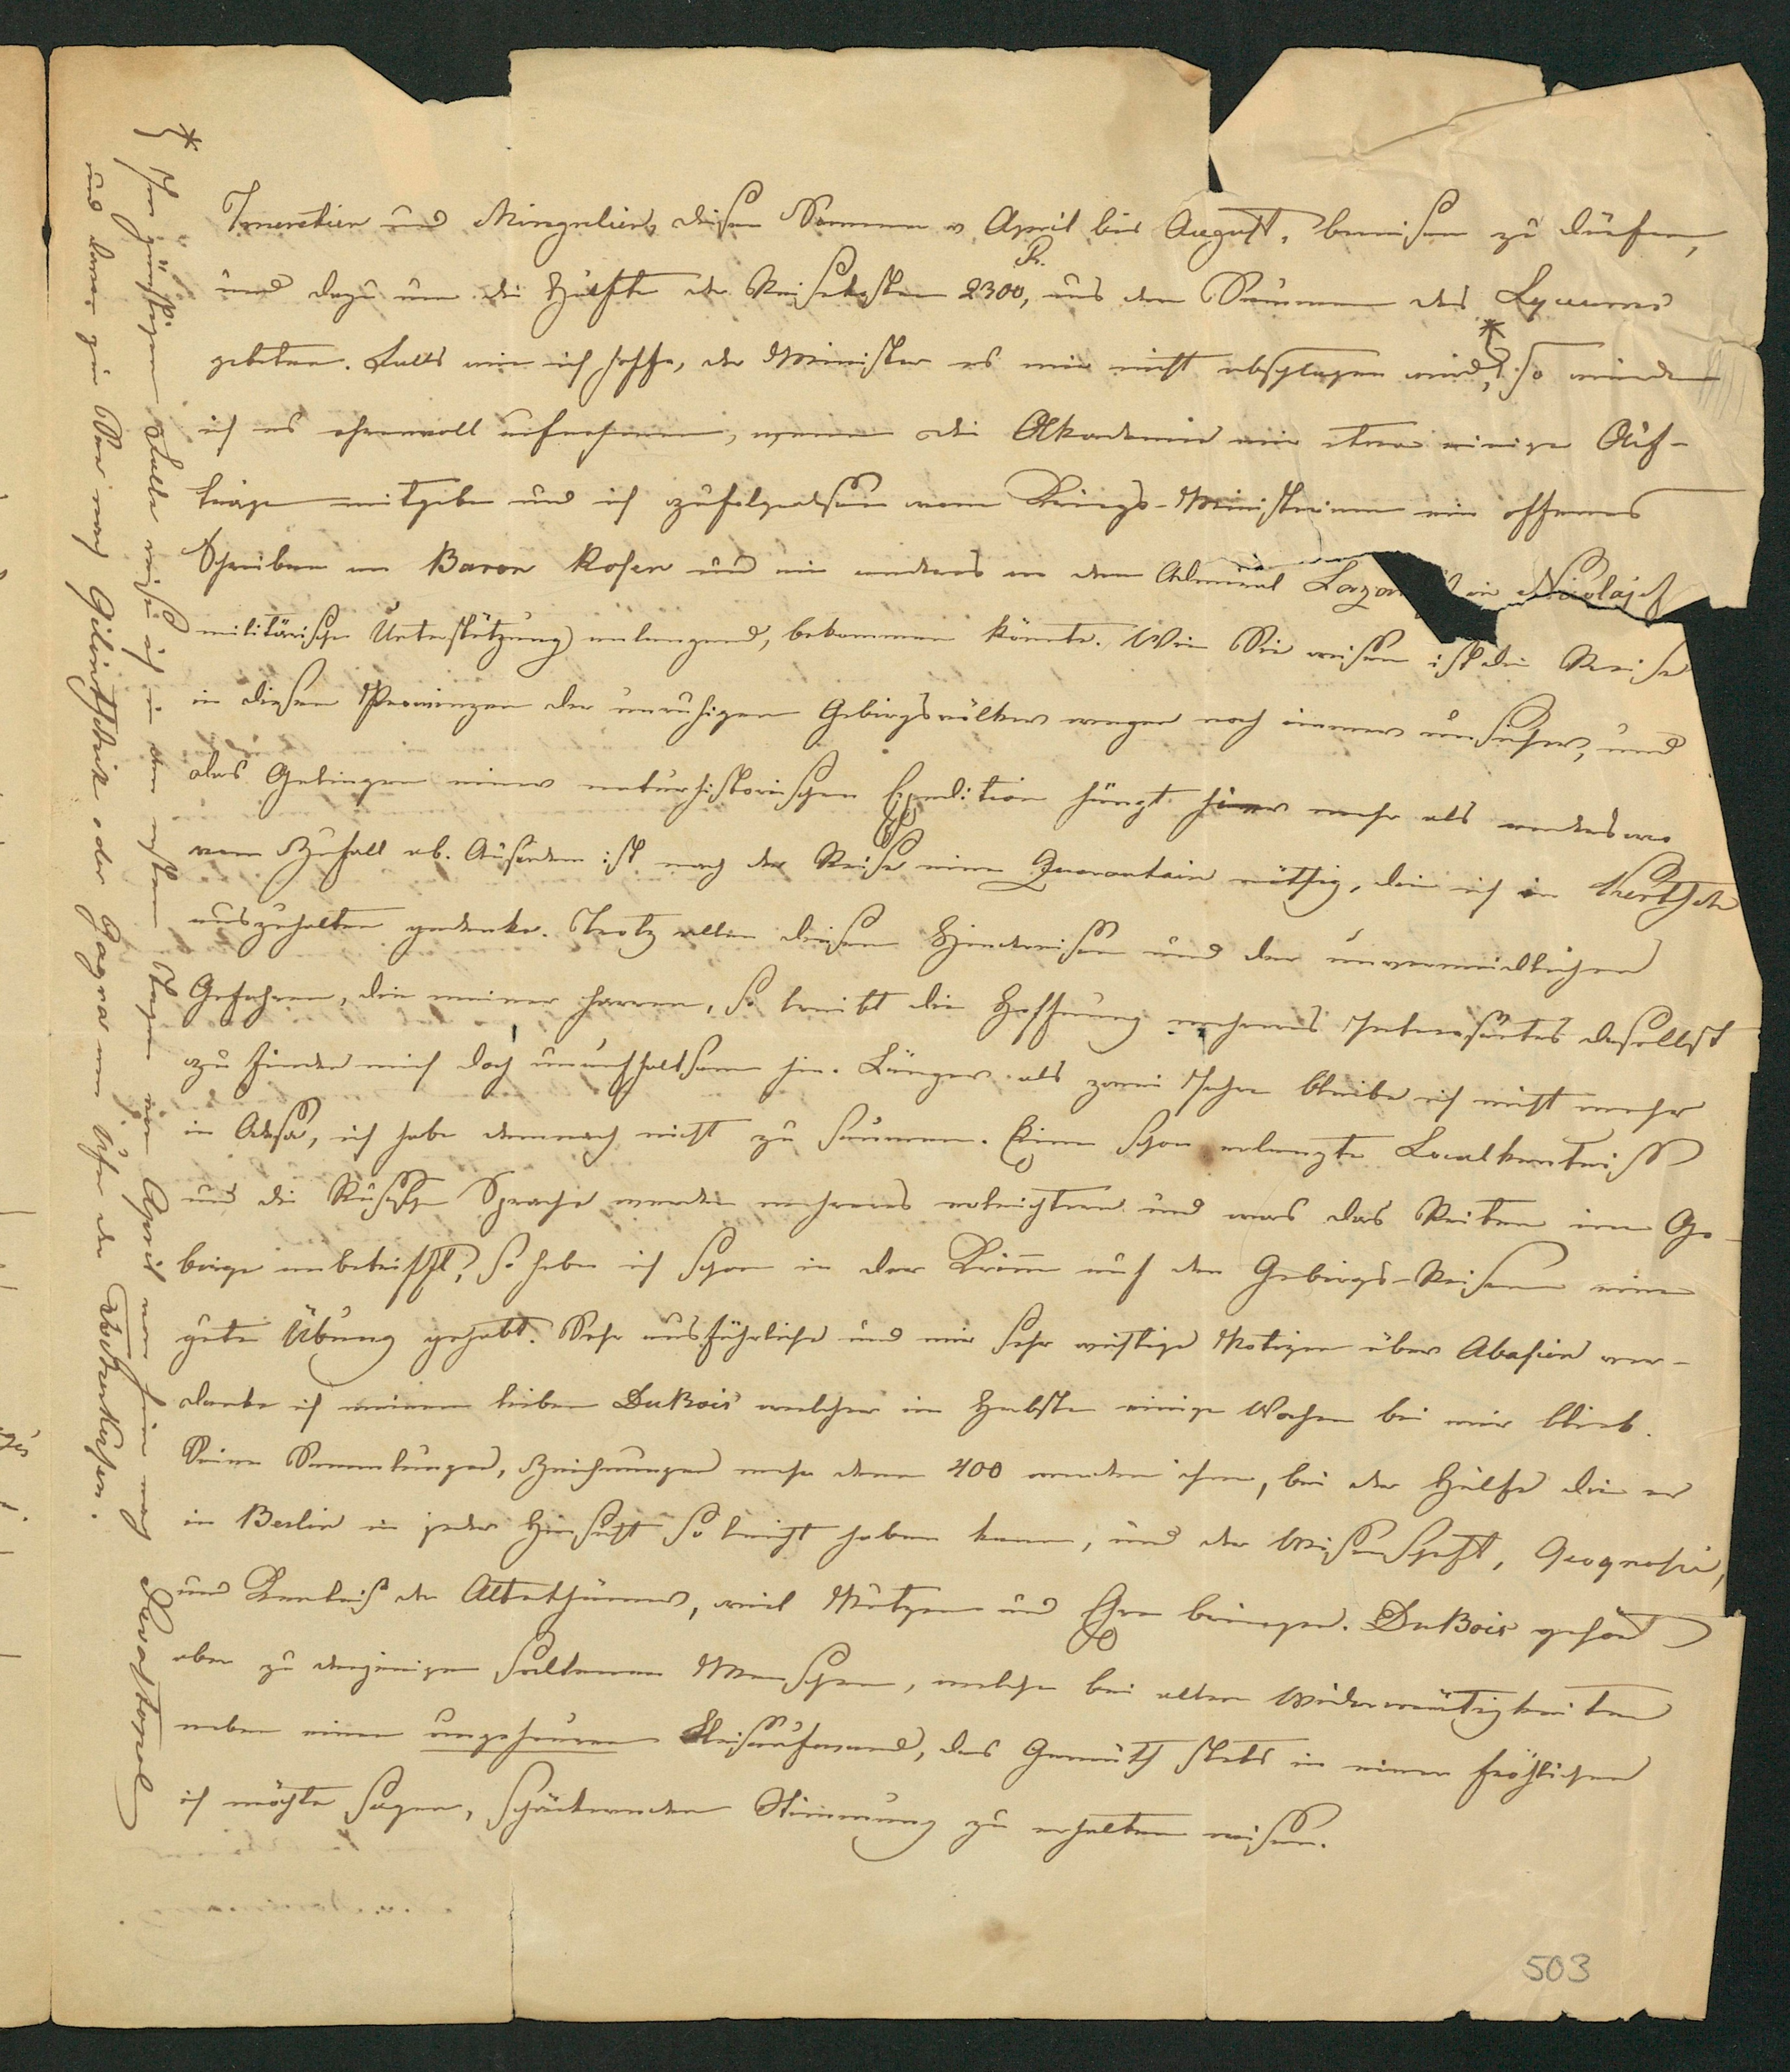 Imeretien und Mingrelien, diesen Sommer v April bis August, bereisen zu dürfen,
und dazu um die Hälfte der Reisekosten 2300 R., aus den Summen des Lyceums
gebeten. Falls wie ich hoffe, der Minister es mir nicht abschlagen wird,* so würde
ich es ehrenvoll aufnehmen, wenn die Akademie mir etwa einige Auf-
träge mitgeben und ich zufolgedessen vom Kriegs-Ministerium ein offenes
Schreiben an Baron Rosen und ein anderes an den Admiral Lazar in Nicolajef
militärische Unterstützung anlangend, bekommen könnte. Wie Sie wissen ist die Reise
in diesen Provinzen der unruhigen Gebirgsvölker wegen noch immer unsicher, und
das Gelingen einer naturhistorischen Expedition hängt hier mehr als anderswo
vom Zufall ab. Ausserdem ist nach der Reise eine Quarantain nöthig, die ich in Kertsch
auszuhalten gedenke. Trotz allen diesen Hindernissen und der unvermeidlichen
Gefahren, die meiner harren, so treibt die Hoffnung mehreres Interessantes daselbst
zu finden mich doch unaufhaltsam hin. Länger als zwei Jahre bleibe ich nicht mehr
in Odessa, ich habe demnach nicht zu säumen. Eine schon erlangte Localkentniss
und die Russische Sprache werden mehreres erleichtern und was das Reiten im Ge-
birge anbetrifft, so habe ich schon in der Krimm auf den Gebirgs-Reisen eine
gute Übung gehabt. Sehr ausführliche und mir sehr wichtige Notizen über Abasien ver-
danke ich meinem lieben DuBois welcher im Herbste einige Wochen bei mir blieb.
Seine Sammlungen, Zeichnungen mehr denn 400 werden ihm, bei der Hülfe die er
in Berlin in jeder Hinsicht so leicht haben kann, und der Wissenschaft, Geognosie,
und Kentniss der Alterthümer, viel Nutzen und Ehre bringen. DuBois gehört
aber zu denjenigen seltenen Menschen, welche bei allen Widerwärtigkeiten
neben einem ungeheuren Kraftaufwand, das Gemüth stets in einer fröhlichen
ich möchte sagen, schäckernden Stimmung zu erhalten wissen.
* Im günstigen Falle reise ich in den ersten Tagen im April von hier nach Sevastopol
und dann zur See nach Gilintschik oder Gagra am Ufer der Tscherkessen.
503